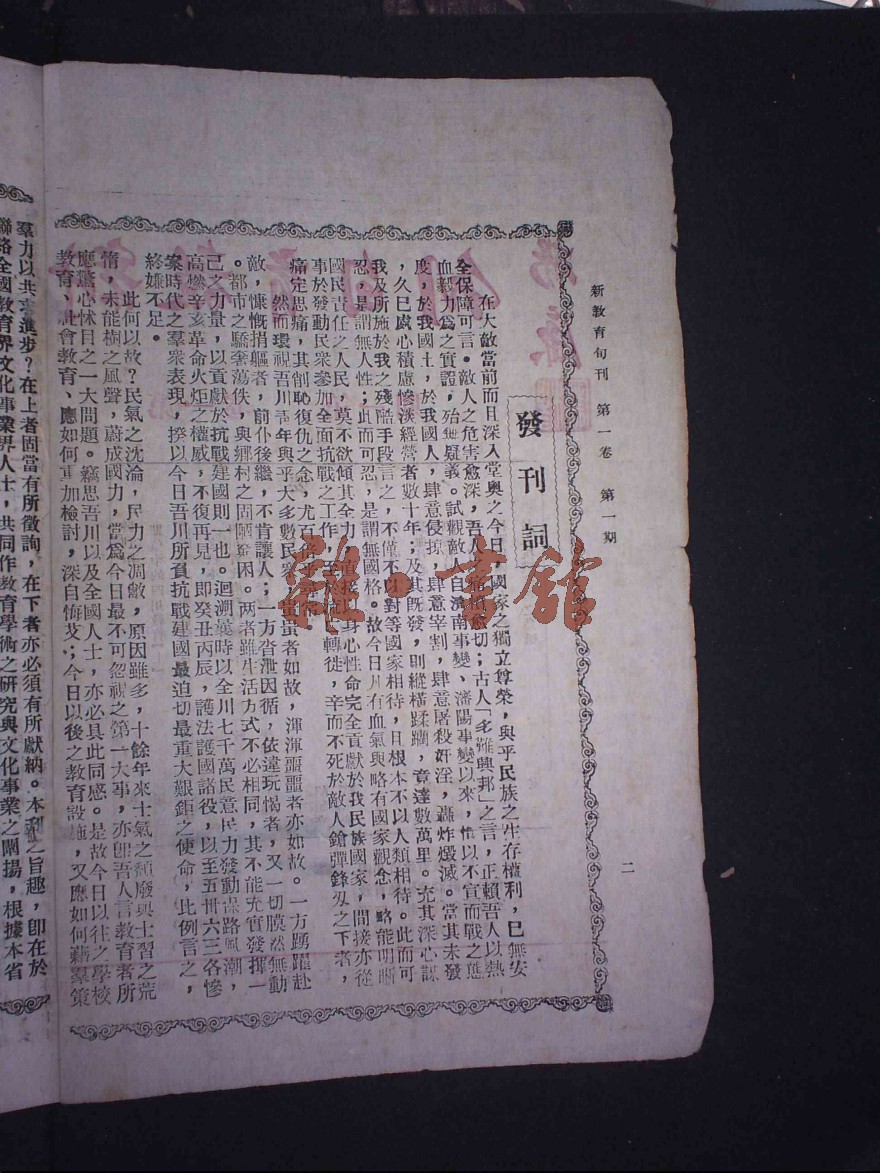 新教育旬刊 第一卷 第一期
二
發刊詞
在大敵當前而日深入堂奥之今日，國家之獨立尊榮，與乎民族之生存權利，已無安
全保障可言。敵人之危害愈深，吾人愈切；古人「多難興邦」之言，正賴吾人以熱
血毅力爲之實證，殆無疑義。試觀敵人自濟南事變、瀋陽事變以來，慣以不宣而戰之態
度，於我國土，於我國人，肆意侵掠，肆意宰割，肆意屠殺奸淫，轟炸燬滅。當其未發
，久已處心積慮慘淡經營者數十年；及其旣發，則縱橫蹂躪，竟達數萬里。充其深心謀
我及所施於我之残酷手段言之，不僅不以對等國家相待，日根本不以人類相待。此而可
忍，是謂無人性；此而可忍，是謂無國格。故今日凡有血氣與略有國家觀念，略能明晰
國民責任之人民，莫不欲傾其全力直接以身心性命完全貢獻於我民族國家，間接亦從
事於發動民衆參加全面抗戰之工作，轉徙，辛而不死於敵人鎗彈鋒刄之下者，
痛定思痛，其削恥復仇之念，尤百倍
然而環視吾川靑年與乎大多數民衆，蚩蚩者如故，渾渾噩噩者亦如故。一方踴躍赴
敵，慷慨捐軀者，前仆後繼，不肯讓人；一方沓泄因循，依違玩愒者，又一切膜然無動
。都市之驕奢蕩佚，與鄉村之固陋窮困。两者雖生活方式不必相同，其不能充實發揮一
己之力量，以貢獻於抗戰建國則一也。迴溯滿時以全川七千萬民意民力發動保路風潮，
高燃辛亥革命火炬之權威，不復再見，即癸丑丙辰，護法護國諸役，以至五卅六三各慘
案時代之羣衆表現，揆以今日吾川所負抗戰建國最迫切最重大艱鉅之使命，比例言之，
終嫌不足。
此何以故？民氣之沈淪，民力之凋敝，原因雖多，十餘年來士氣之頹廢與士習之荒
惰，未能樹之風聲，蔚成國力，當爲今日最不可忽視之第一大事，亦卽吾人言教育者所
應驚心怵目之一大問題。竊思吾川以及全國人士，亦必具此同感。是故今日以往之學校
教育、社會教育、應如何重加檢討，深自悔艾；今日以後之教育設施，又應如何藉羣策
羣力以共求進步？在上者固當有所徵詢，在下者亦必須有所獻納。本刊之旨趣，卽在於
聯絡全國教育界文化事業界人士，共同作教育學術之研究與文化事業之闡揚，根據本省
雜·書館